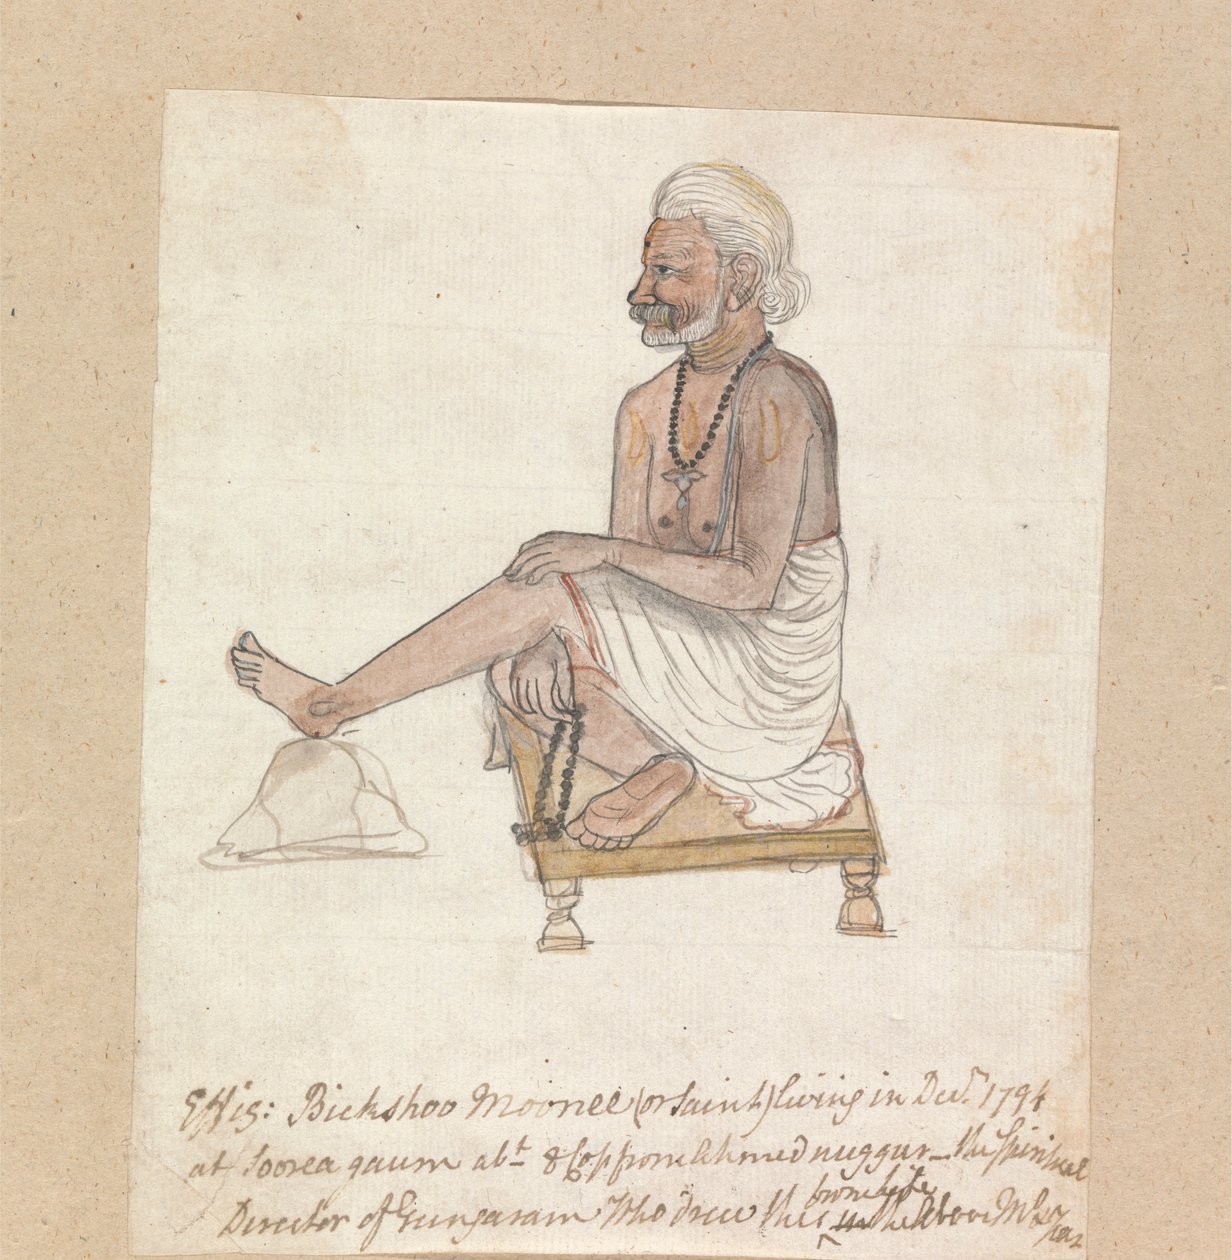 Effig: Bickshoo Moonee (or Saint) living in Decr. 1794
at Soorea gaum abt. 8 Cos from Ahmednuggur_ the Spiritual
Director of Gungaram Who drew this from life in the above M &